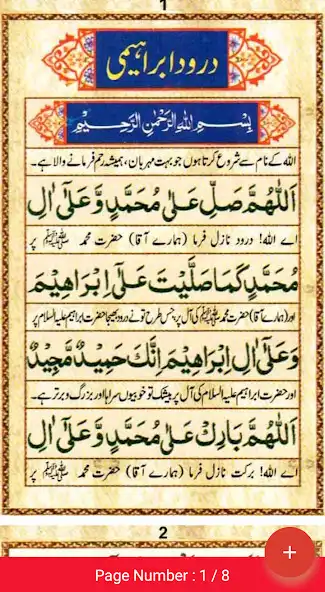 1
درود ابراہیمی
بِسْمِ اللهِ الرَّحْمٰنِ الرَّحِيْمِ
اللہ کے نام سے شروع کرتا ہوں جو بہت مہربان، ہمیشہ رحم فرمانے والا ہے۔
اَللّٰهُمَّ صَلِّ عَلٰى مُحَمَّدٍ وَّعَلٰٓى اٰلِ
اے اللہ! درود نازل فرما (ہمارے آقا) حضرت محمد ﷺ پر
مُحَمَّدٍ كَمَا صَلَّيْتَ عَلٰٓى اِبْرَاهِيْمَ
اور (ہمارے آقا) حضرت محمد ﷺ کی آل پر، جس طرح تو نے درود بھیجا حضرت ابراہیم علیہ السلام پر
وَعَلٰٓى اٰلِ اِبْرَاهِيْمَ اِنَّكَ حَمِيْدٌ مَّجِيْدٌ
اور حضرت ابراہیم علیہ السلام کی آل پر بیشک تو خوبیوں سراپا اور بزرگ و برتر ہے۔
اَللّٰهُمَّ بَارِكْ عَلٰى مُحَمَّدٍ وَّعَلٰٓى اٰلِ
اے اللہ! برکت نازل فرما (ہمارے آقا) حضرت محمد ﷺ پر
2
+
Page Number : 1 / 8